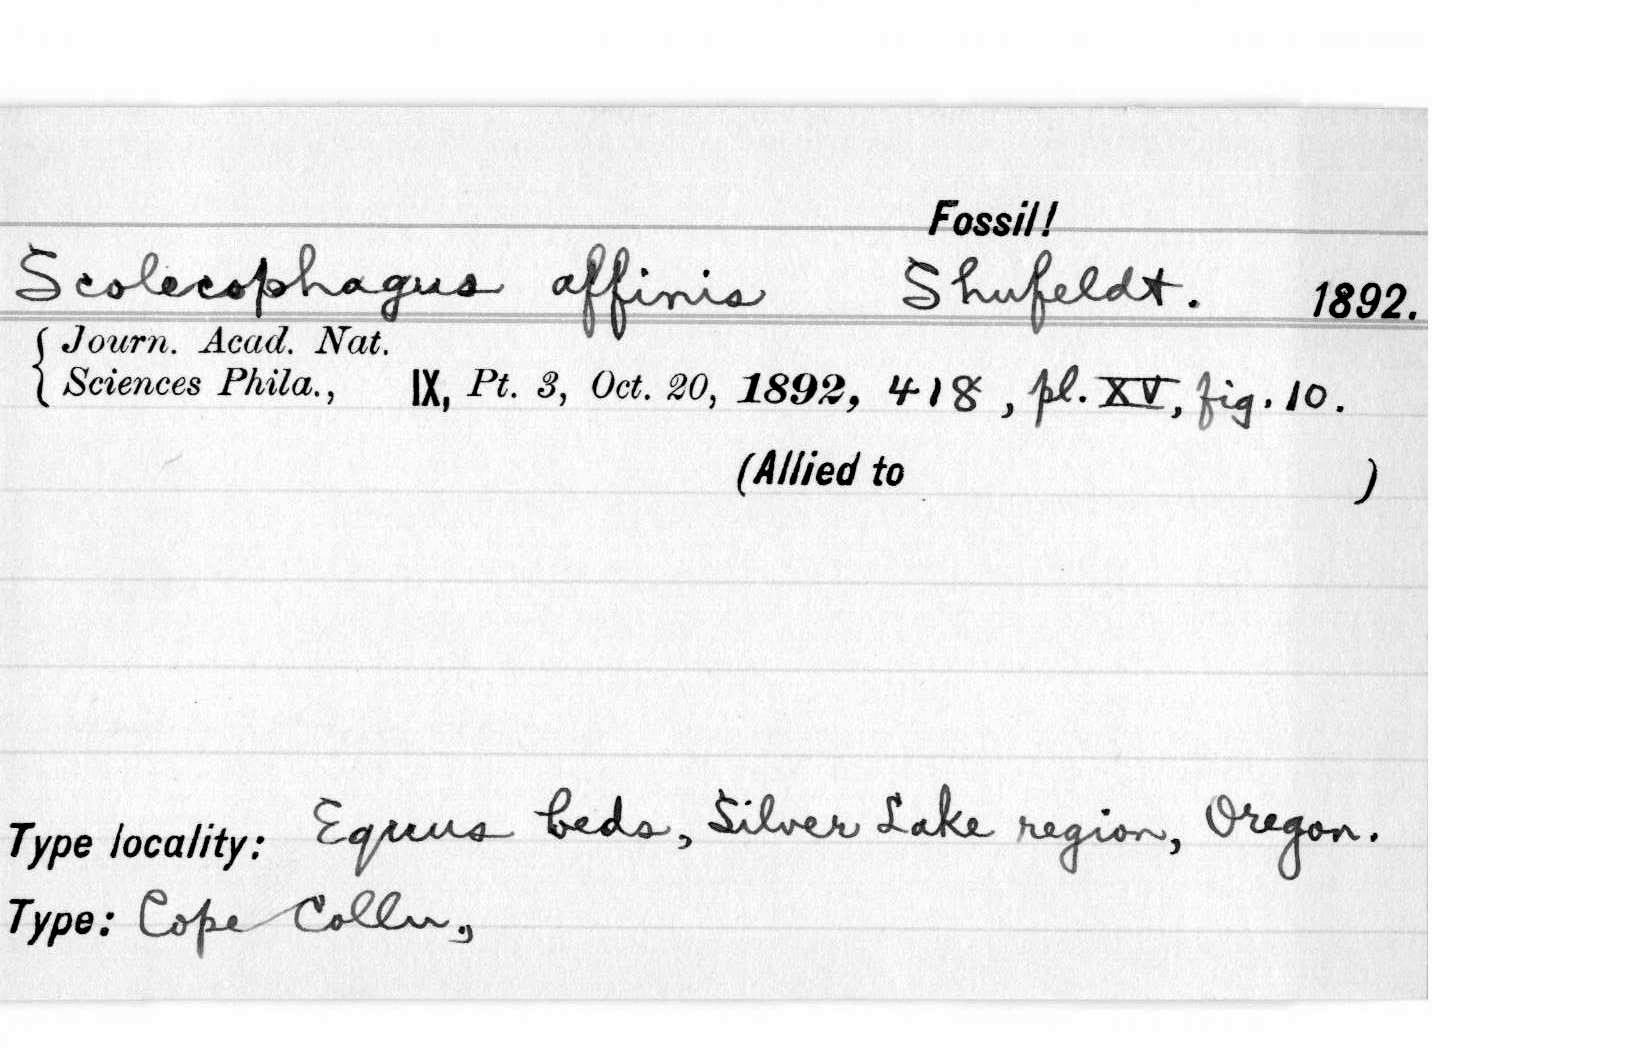 Fossil!
Scolecophagus affinis Shufeldt. 1892.
Journ. Acad. Nat.
Sciences Phila., IX, Pt. 3, Oct. 20, 1892, 418, pl. XV, fig. 10.
(Allied to )
Type locality: Equus beds, Silver Lake region, Oregon.
Type: Cope Colln.,